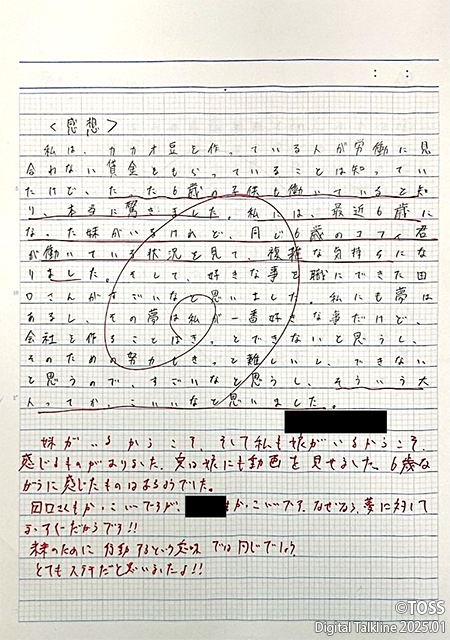 : :
<感想>
私は、カカオ豆を作っている人が労働に見
合わない賃金をもらっていることは知ってい
たけど、たった6歳の子供も働いていると知
り、本当に驚きました。私には、最近6歳に
なった妹がいるけれど、同じ6歳のコフィ君
が働いている状況を見て、複雑な気持ちにな
りました。そして、好きな事を職にできた田
口さんがすごいなと思いました。私にも夢は
あるし、その夢は私が一番好きな事だけど、
会社を作ることはきっとできないと思うし、
そのための努力もきっと難しいし、できない
と思うので、すごいなと思うし、そういう大
人ってかっこいいなと思いました。
妹がいるからこそ、そして私も娘がいるからこそ、
感じるものがありました。実は娘にも動画を見せました。6歳な
がらに感じたものはあるようでした。
田口さんもかっこいいですが、 もかっこいいです。なぜなら、夢に対して
まっすぐだからです!!
未来のために行動するという意味では同じでしょう。
とてもステキだと思いましたよ!!
©TOSS
Digital Talkline 2025.01